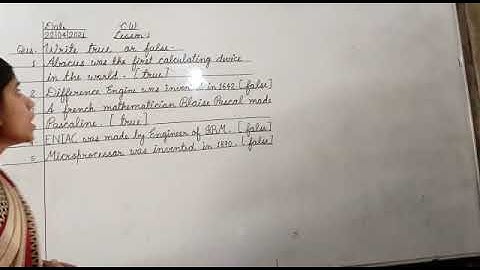 Date CW
22/04/2021 Lesson 1
Ques. Write true or false-
1. Abacus was the first calculating device
in the world. [true]
2. Difference Engine was Invented in 1642 [false]
A french mathematician Blaise Pascal made
Pascaline. [true]
ENIAC was made by Engineer of IBM. [false]
5. Microprocessor was invented in 1890. [false]